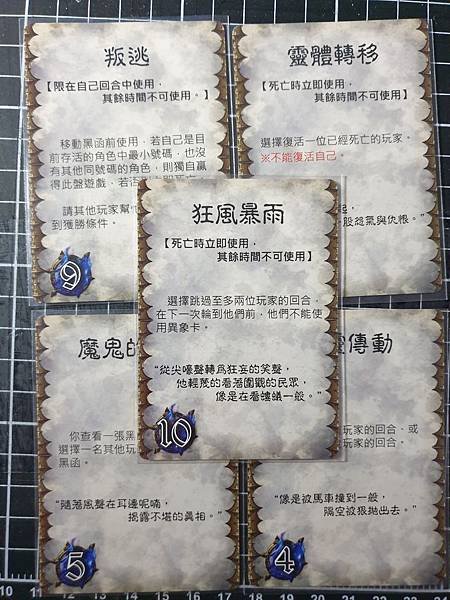 叛逃
【限在自己回合中使用,
其餘時間不可使用。】
移動黑函前使用,若自己是目
前存活的角色中最小號碼,也沒
有其他同號碼的角色,則獨自贏
得此盤遊戲、若
請其他玩家幫
到獲勝條件。
9
靈體轉移
【死亡時立即使用,
其餘時間不可使用。】
選擇復活一位已經死亡的玩家。
※不能復活自己。
起,
股怨氣與仇恨。”
狂風暴雨
【死亡時立即使用,
其餘時間不可使用】
選擇跳過至多兩位玩家的回合,
在下一次輪到他們前,他們不能
使用異象卡。
“從尖嚎聲轉為狂妄的笑聲,
他輕蔑的看著圍觀的民眾,
像是在看螻蟻一般。”
10
魔鬼的
你查看一張黑
選擇一名其他玩
黑函。
“隨著風聲在耳邊呢喃,
揭露不堪的真相。”
5
傳動
玩家的回合、或
玩家的回合。
“像是被馬車撞到一般,
隔空被狠拋出去。”
4
10 11 12 13 14 15 16 17 18 19 20 21 22 23 24